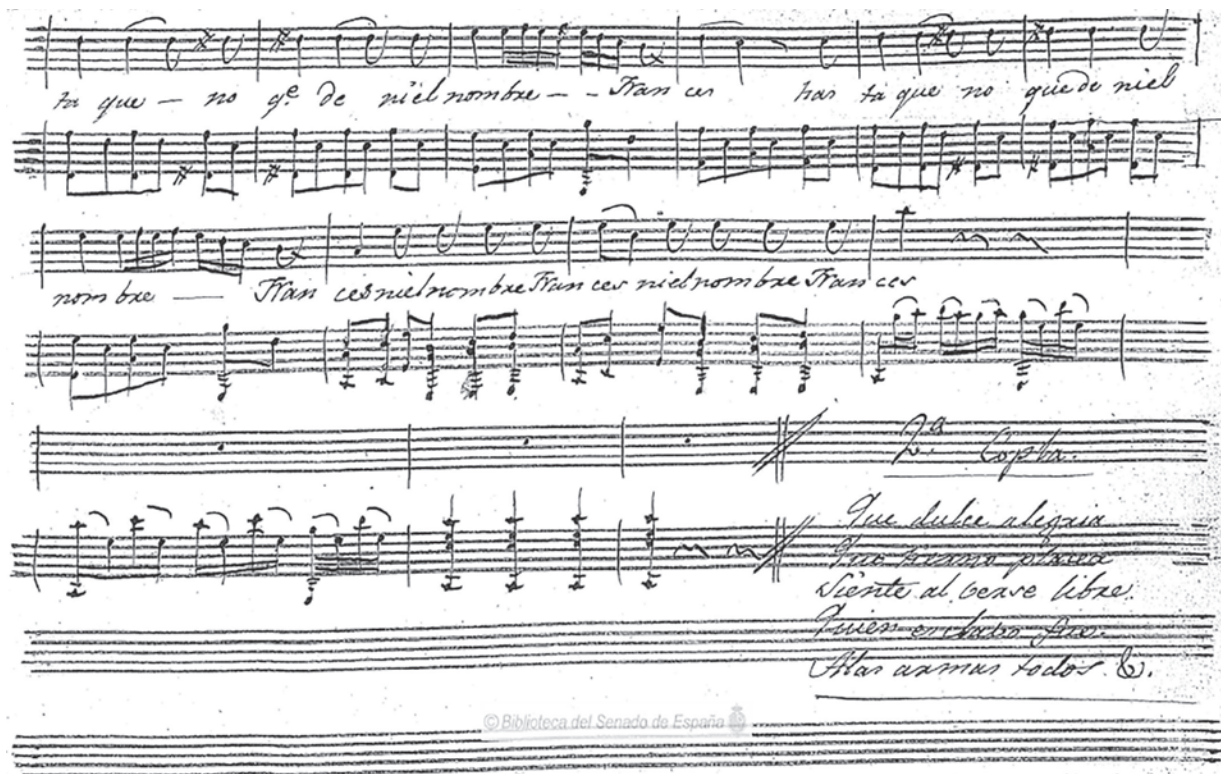 ta que — no q.e de niel nombre — - Fran ces has ta que no quede niel
nombre — Fran ces niel nombre Fran ces niel nombre Fran ces
2.a Copla.
Que dulce alegria
Que tierno placer
Siente al verse libre.
Quien esclabo fue.
Alas armas todos. &.
© Biblioteca del Senado de España